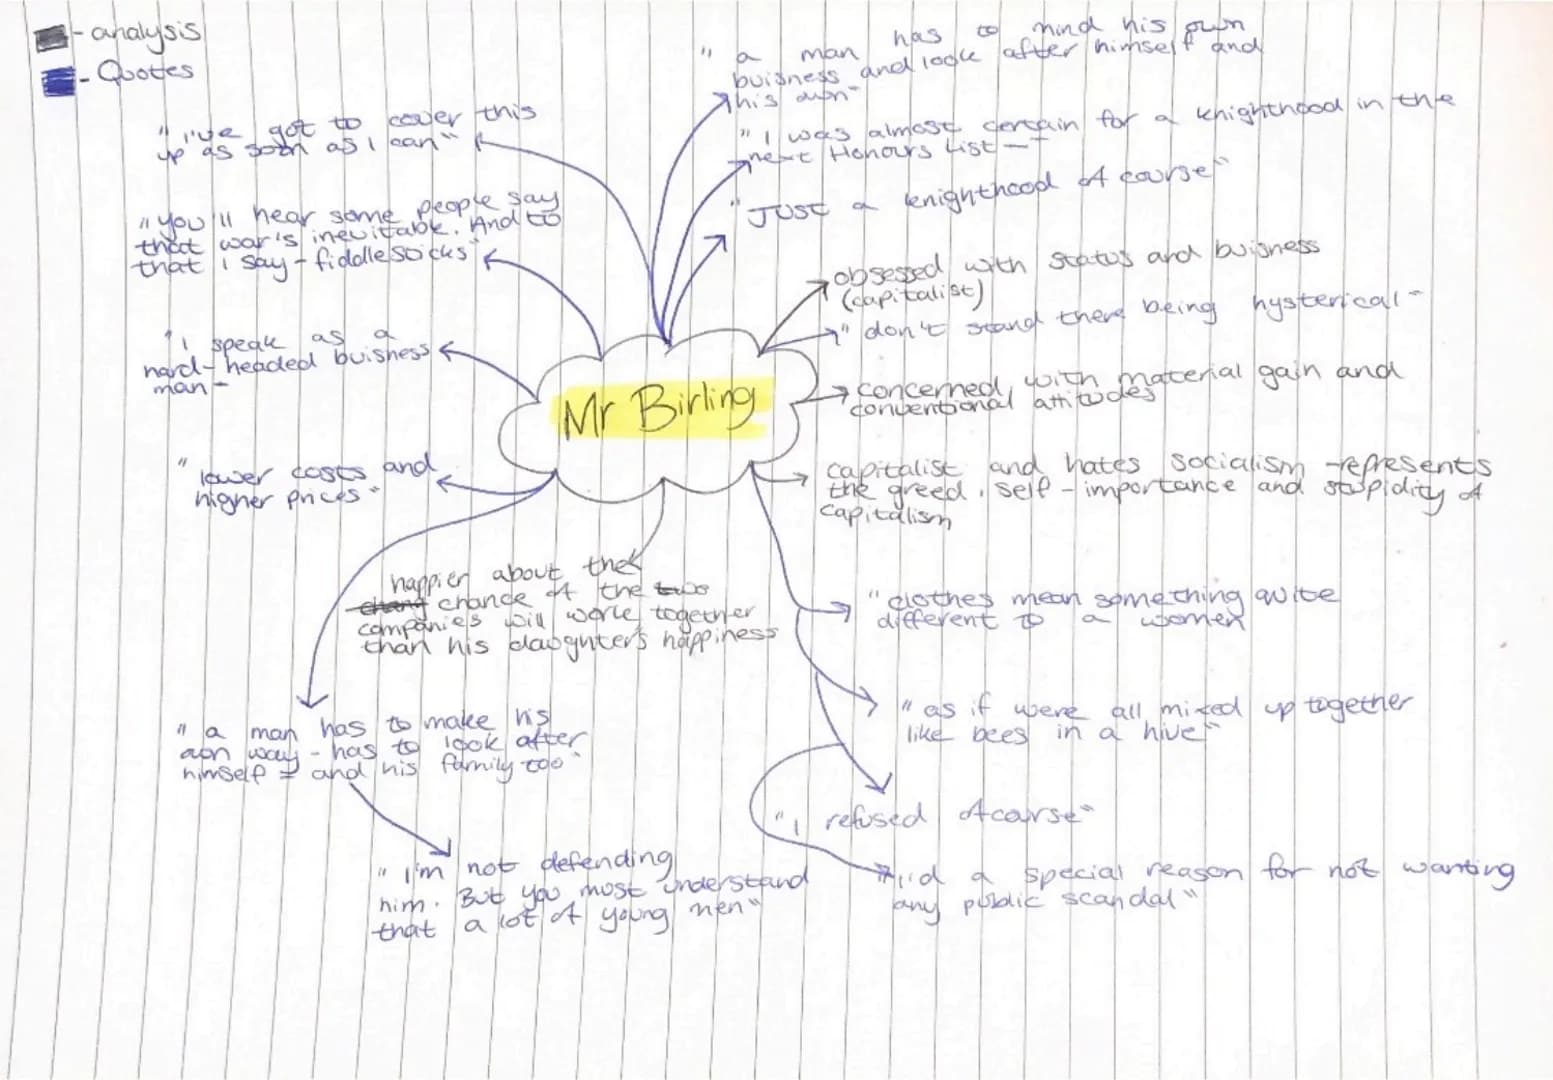 - analysis
- Quotes
" a man has to mind his own
buisness and look after himself and
his own"
" I was almost certain for a knighthood in the
next Honours List -"
"Just a knighthood of course"
obsessed with status and buisness
(capitalist)
" don't stand there being hysterical"
concerned with material gain and
conventional attitudes
capitalist and hates socialism - represents
the greed, self-importance and stupidity of
capitalism
" clothes mean something quite
different to a women"
" as if were all mixed up together
like bees in a hive"
"I refused of course"
"I'd a special reason for not wanting
any public scandal"
"I've got to cover this
up as soon as I can"
"you'll hear some people say
that war's inevitable. And to
that I say - fiddlesticks"
"I speak as a
hard-headed buisness
man"
"lower costs and
higher prices"
Mr Birling
happier about the
chance of the two
companies will work together
than his daughter's happiness
" a man has to make his
own way - has to look after
himself - and his family too"
" I'm not defending
him. But you must understand
that a lot of young men"